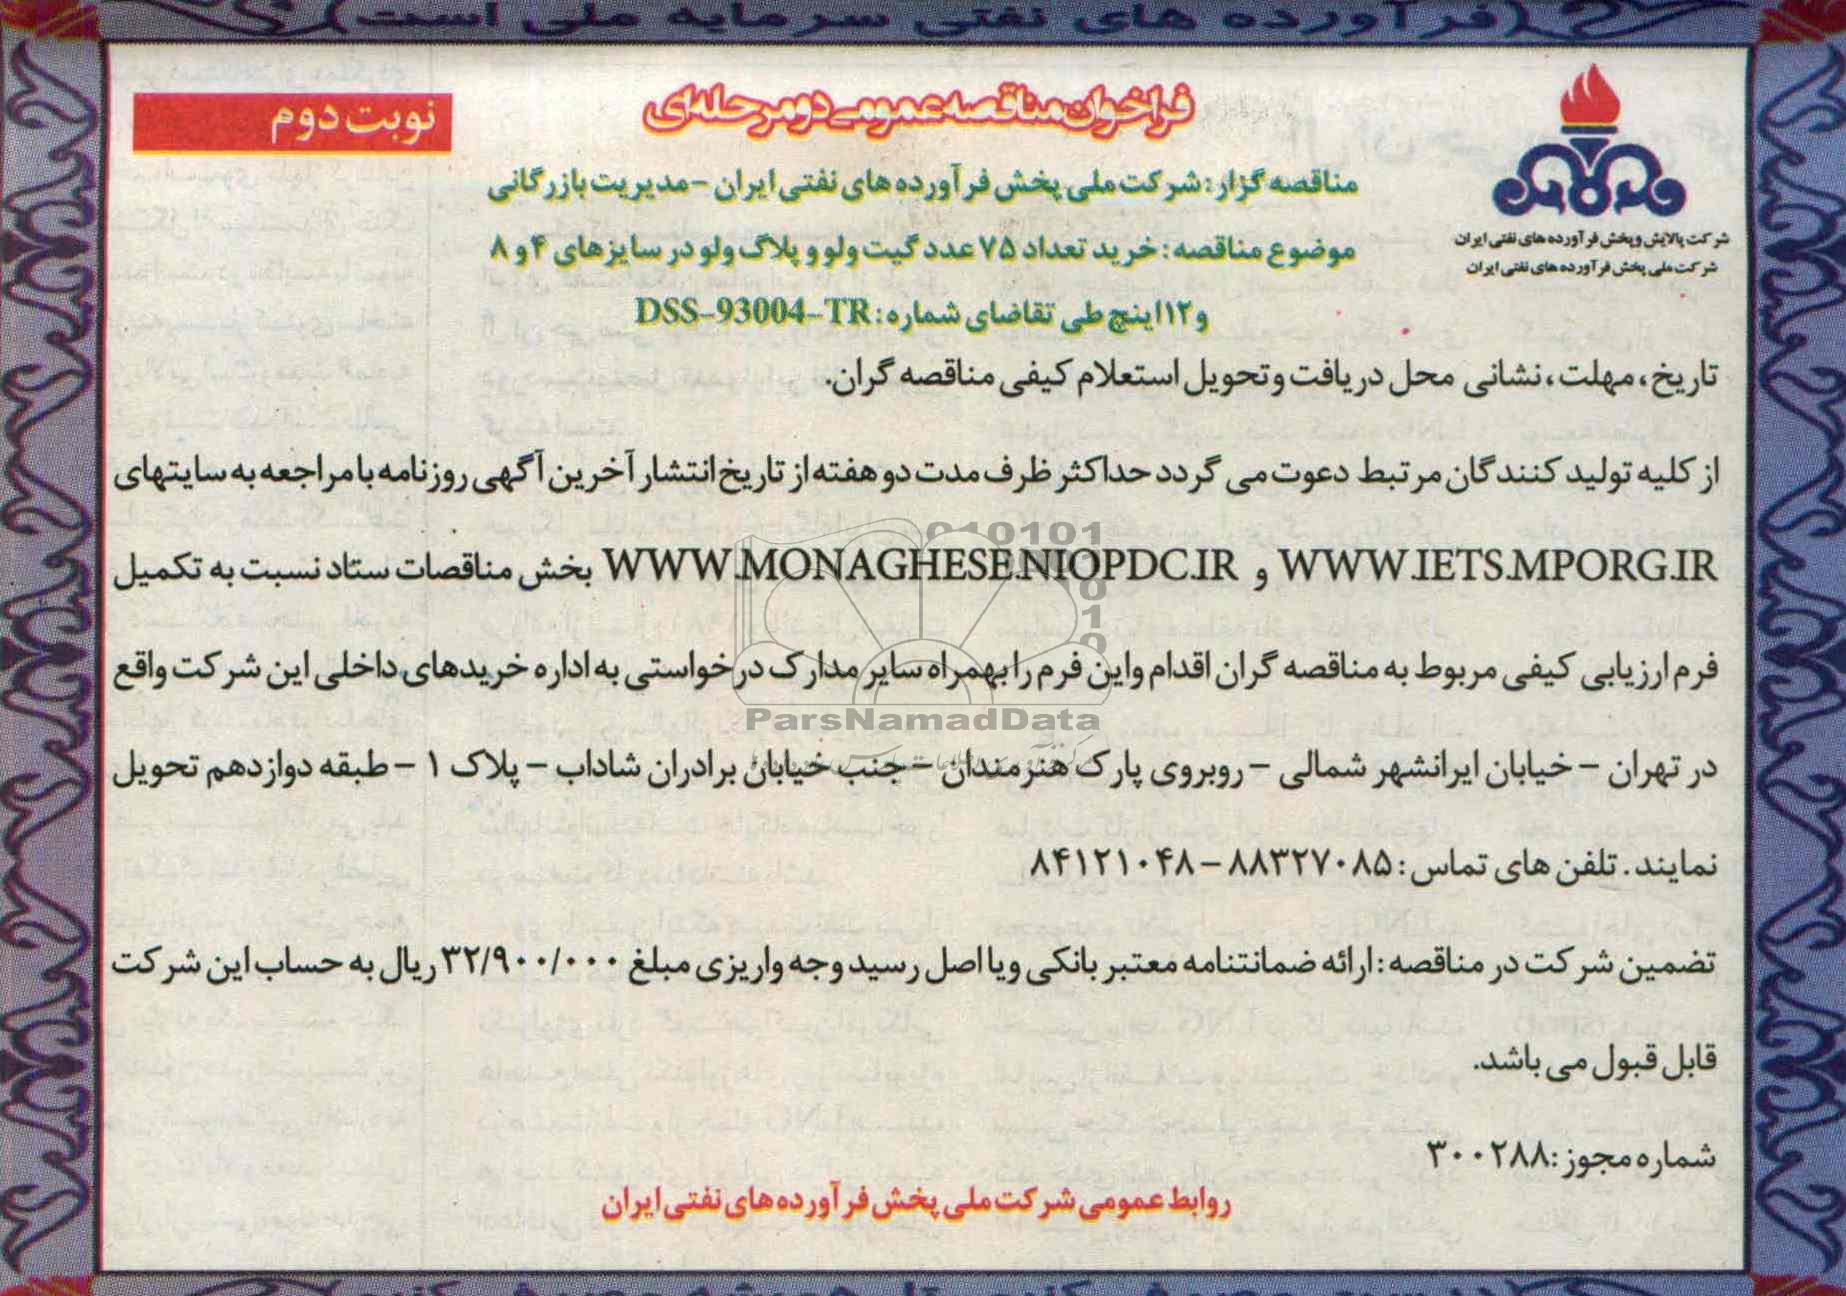 فرآورده های نفتی سرمایه ملی است
فراخوان مناقصه عمومی دومرحله‌ای
نوبت دوم
شرکت پالایش وپخش فرآورده های نفتی ایران
شرکت ملی پخش فرآورده های نفتی ایران
مناقصه گزار: شرکت ملی پخش فرآورده های نفتی ایران -مدیریت بازرگانی
موضوع مناقصه: خرید تعداد ۷۵ عدد گیت ولو و پلاگ ولو در سایزهای ۴ و ۸
و ۱۲ اینچ طی تقاضای شماره: DSS-93004-TR
تاریخ، مهلت، نشانی محل دریافت وتحویل استعلام کیفی مناقصه گران.
از کلیه تولید کنندگان مرتبط دعوت می گردد حداکثر ظرف مدت دو هفته از تاریخ انتشار آخرین آگهی روزنامه با مراجعه به سایتهای
WWW.IETS.MPORG.IR و WWW.MONAGHESE.NIOPDC.IR بخش مناقصات ستاد نسبت به تکمیل
فرم ارزیابی کیفی مربوط به مناقصه گران اقدام واین فرم را بهمراه سایر مدارک درخواستی به اداره خریدهای داخلی این شرکت واقع
در تهران – خیابان ایرانشهر شمالی – روبروی پارک هنرمندان – جنب خیابان برادران شاداب – پلاک ۱ – طبقه دوازدهم تحویل
نمایند. تلفن های تماس: ۸۸۳۲۷۰۸۵ – ۸۴۱۲۱۰۴۸
تضمین شرکت در مناقصه: ارائه ضمانتنامه معتبر بانکی ویا اصل رسید وجه واریزی مبلغ ۳۲/۹۰۰/۰۰۰ ریال به حساب این شرکت
قابل قبول می باشد.
شماره مجوز: ۳۰۰۲۸۸
روابط عمومی شرکت ملی پخش فرآورده های نفتی ایران
ParsNamadData